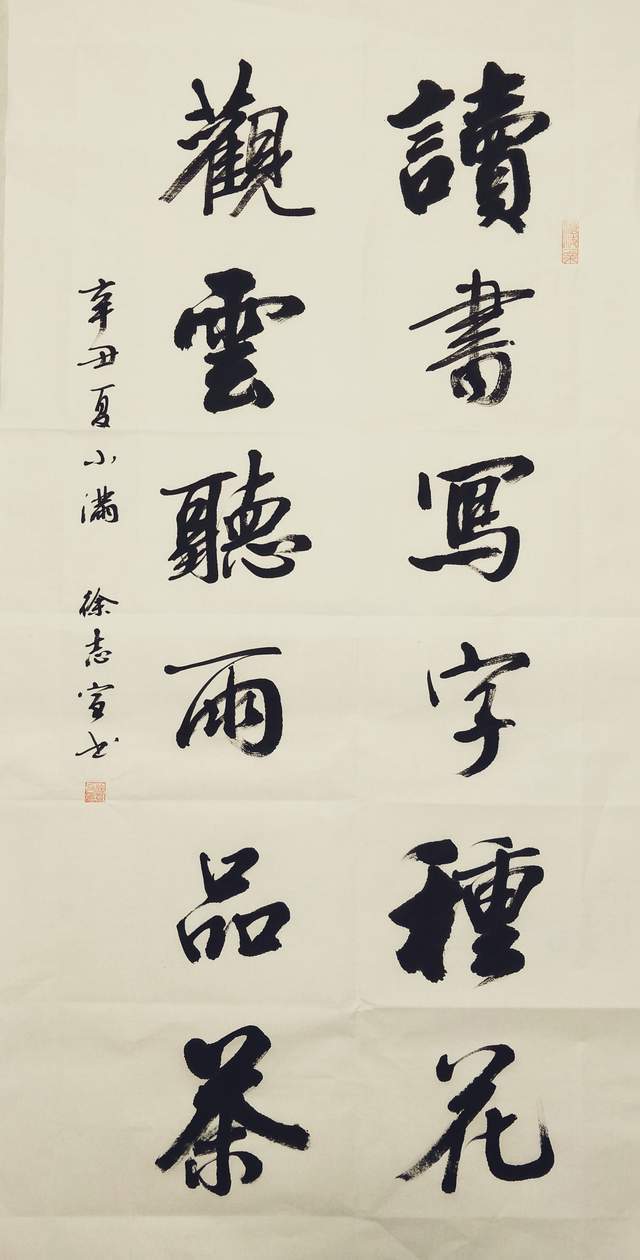 讀書寫字種花
觀雲聽雨品茶
辛丑夏小滿 徐志宣书